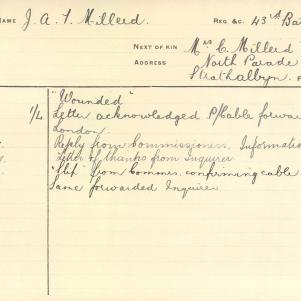 NAME J. A. S. Millerd. REG &C. 43rd Ba
NEXT OF KIN Mrs C. Millerd
ADDRESS North Parade
Strathalbyn.
"Wounded"
1/4 Letter acknowledged P/Cable forwar
London.
Reply from Commissioners. Informatio
Letter of thanks from Inquirer
"Slip" from Commrs. confirming cable
Same forwarded Inquirer.